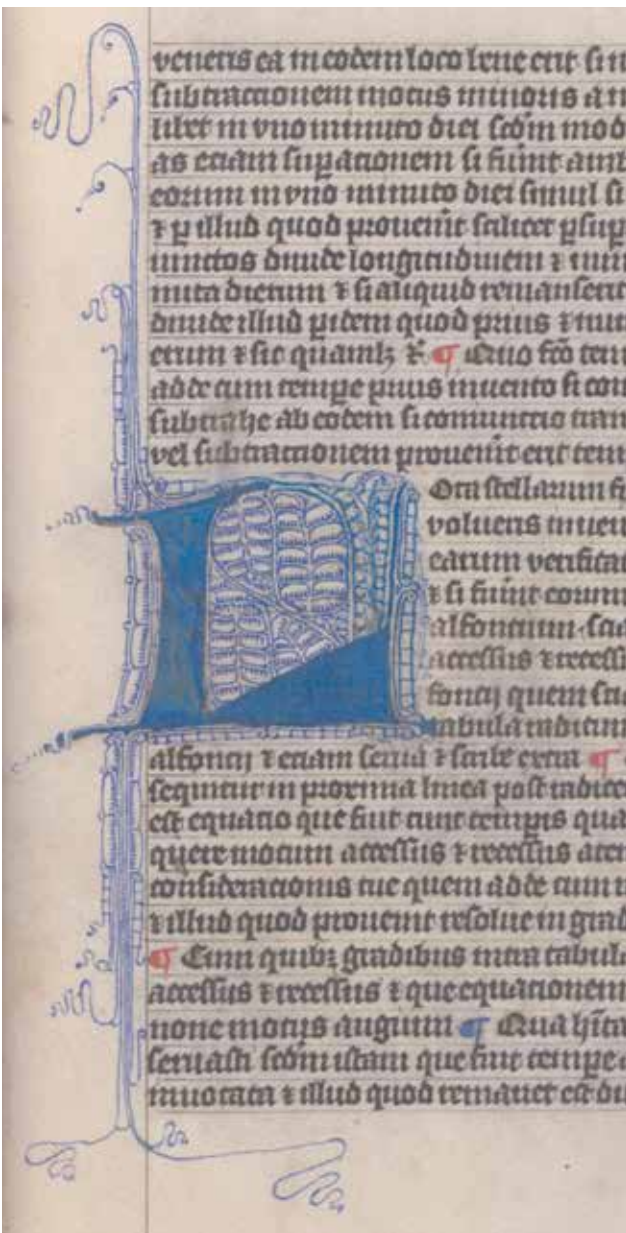 veneris ea in eodem loco leue erit si
subtractionem motus minoris a m
libet in vno minuto diei scdm mod
as eciam supacionem si fuint amb
eorum in vno minuto diei simul si
⁊ p illud quod prouenit scilicet p sup
iunctos diuide longitudinem ⁊ min
nuta dierum ⁊ si aliquid remanserit
diuide illud pidem quod prius ⁊ nut
erum ⁊ sic quamlz ¶ Quo fco tem
adde cum tempe prius inuento si con
subtrahe ab eodem si coniunctio tran
vel subtractionem prouenit erit tem
Loca stellarum fi
volueris inuen
earum verificat
⁊ si fuint eorum
alfoncium
accessus ⁊ recess
foncij quem
tabula radicum
alfoncij ⁊ eciam
sequitur in proxima linea post radice
est equatio que fiut cunt tempis qua
quere motum accessus ⁊ recessus
consideracionis tue quem adde cum
⁊ illud quod prouenit resolue in grad
¶ Cum quibz gradibus intra tabula
accessus ⁊ recessus ⁊ que equationem
none motus augium ¶ Qua hita
seruasti scdm istam que fiut tempe
inuocata ⁊ illud quod remanet